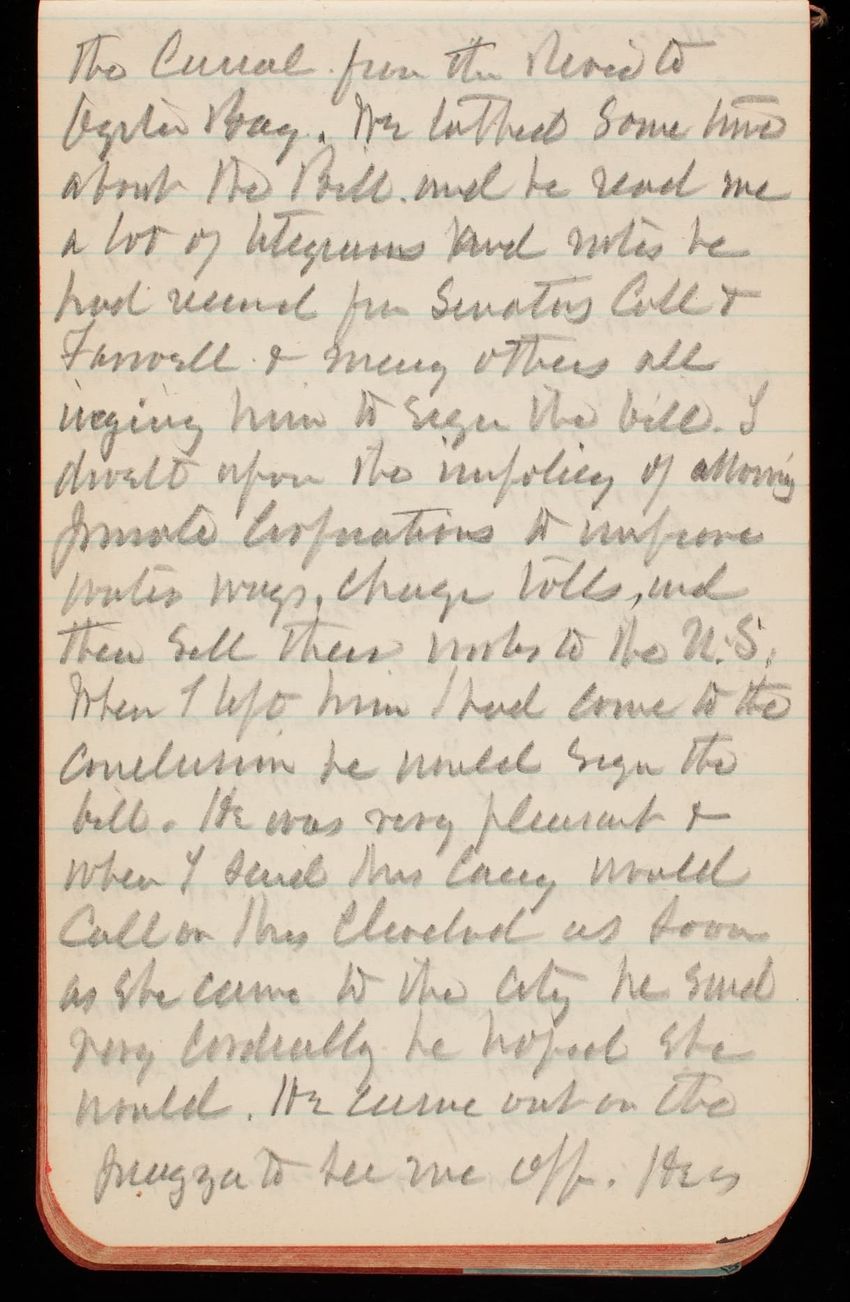 the Canal from the River to
Oyster Bay. We talked some time
about the Bill. and he read me
a lot of telegrams and notes he
had received from Senators Call &
Farwell & many others all
urging him to sign the bill. I
dwelt upon the impolicy of allowing
private Corporations to improve
water ways, charge tolls, and
then sell their works to the U.S.
When I left him I had come to the
conclusion he would sign the
bill. He was very pleasant &
when I said Mrs Casey would
Call on Mrs Cleveland as soon
as she came to the City he said
very cordially he hoped she
would. He came out on the
piazza to see me off. He is